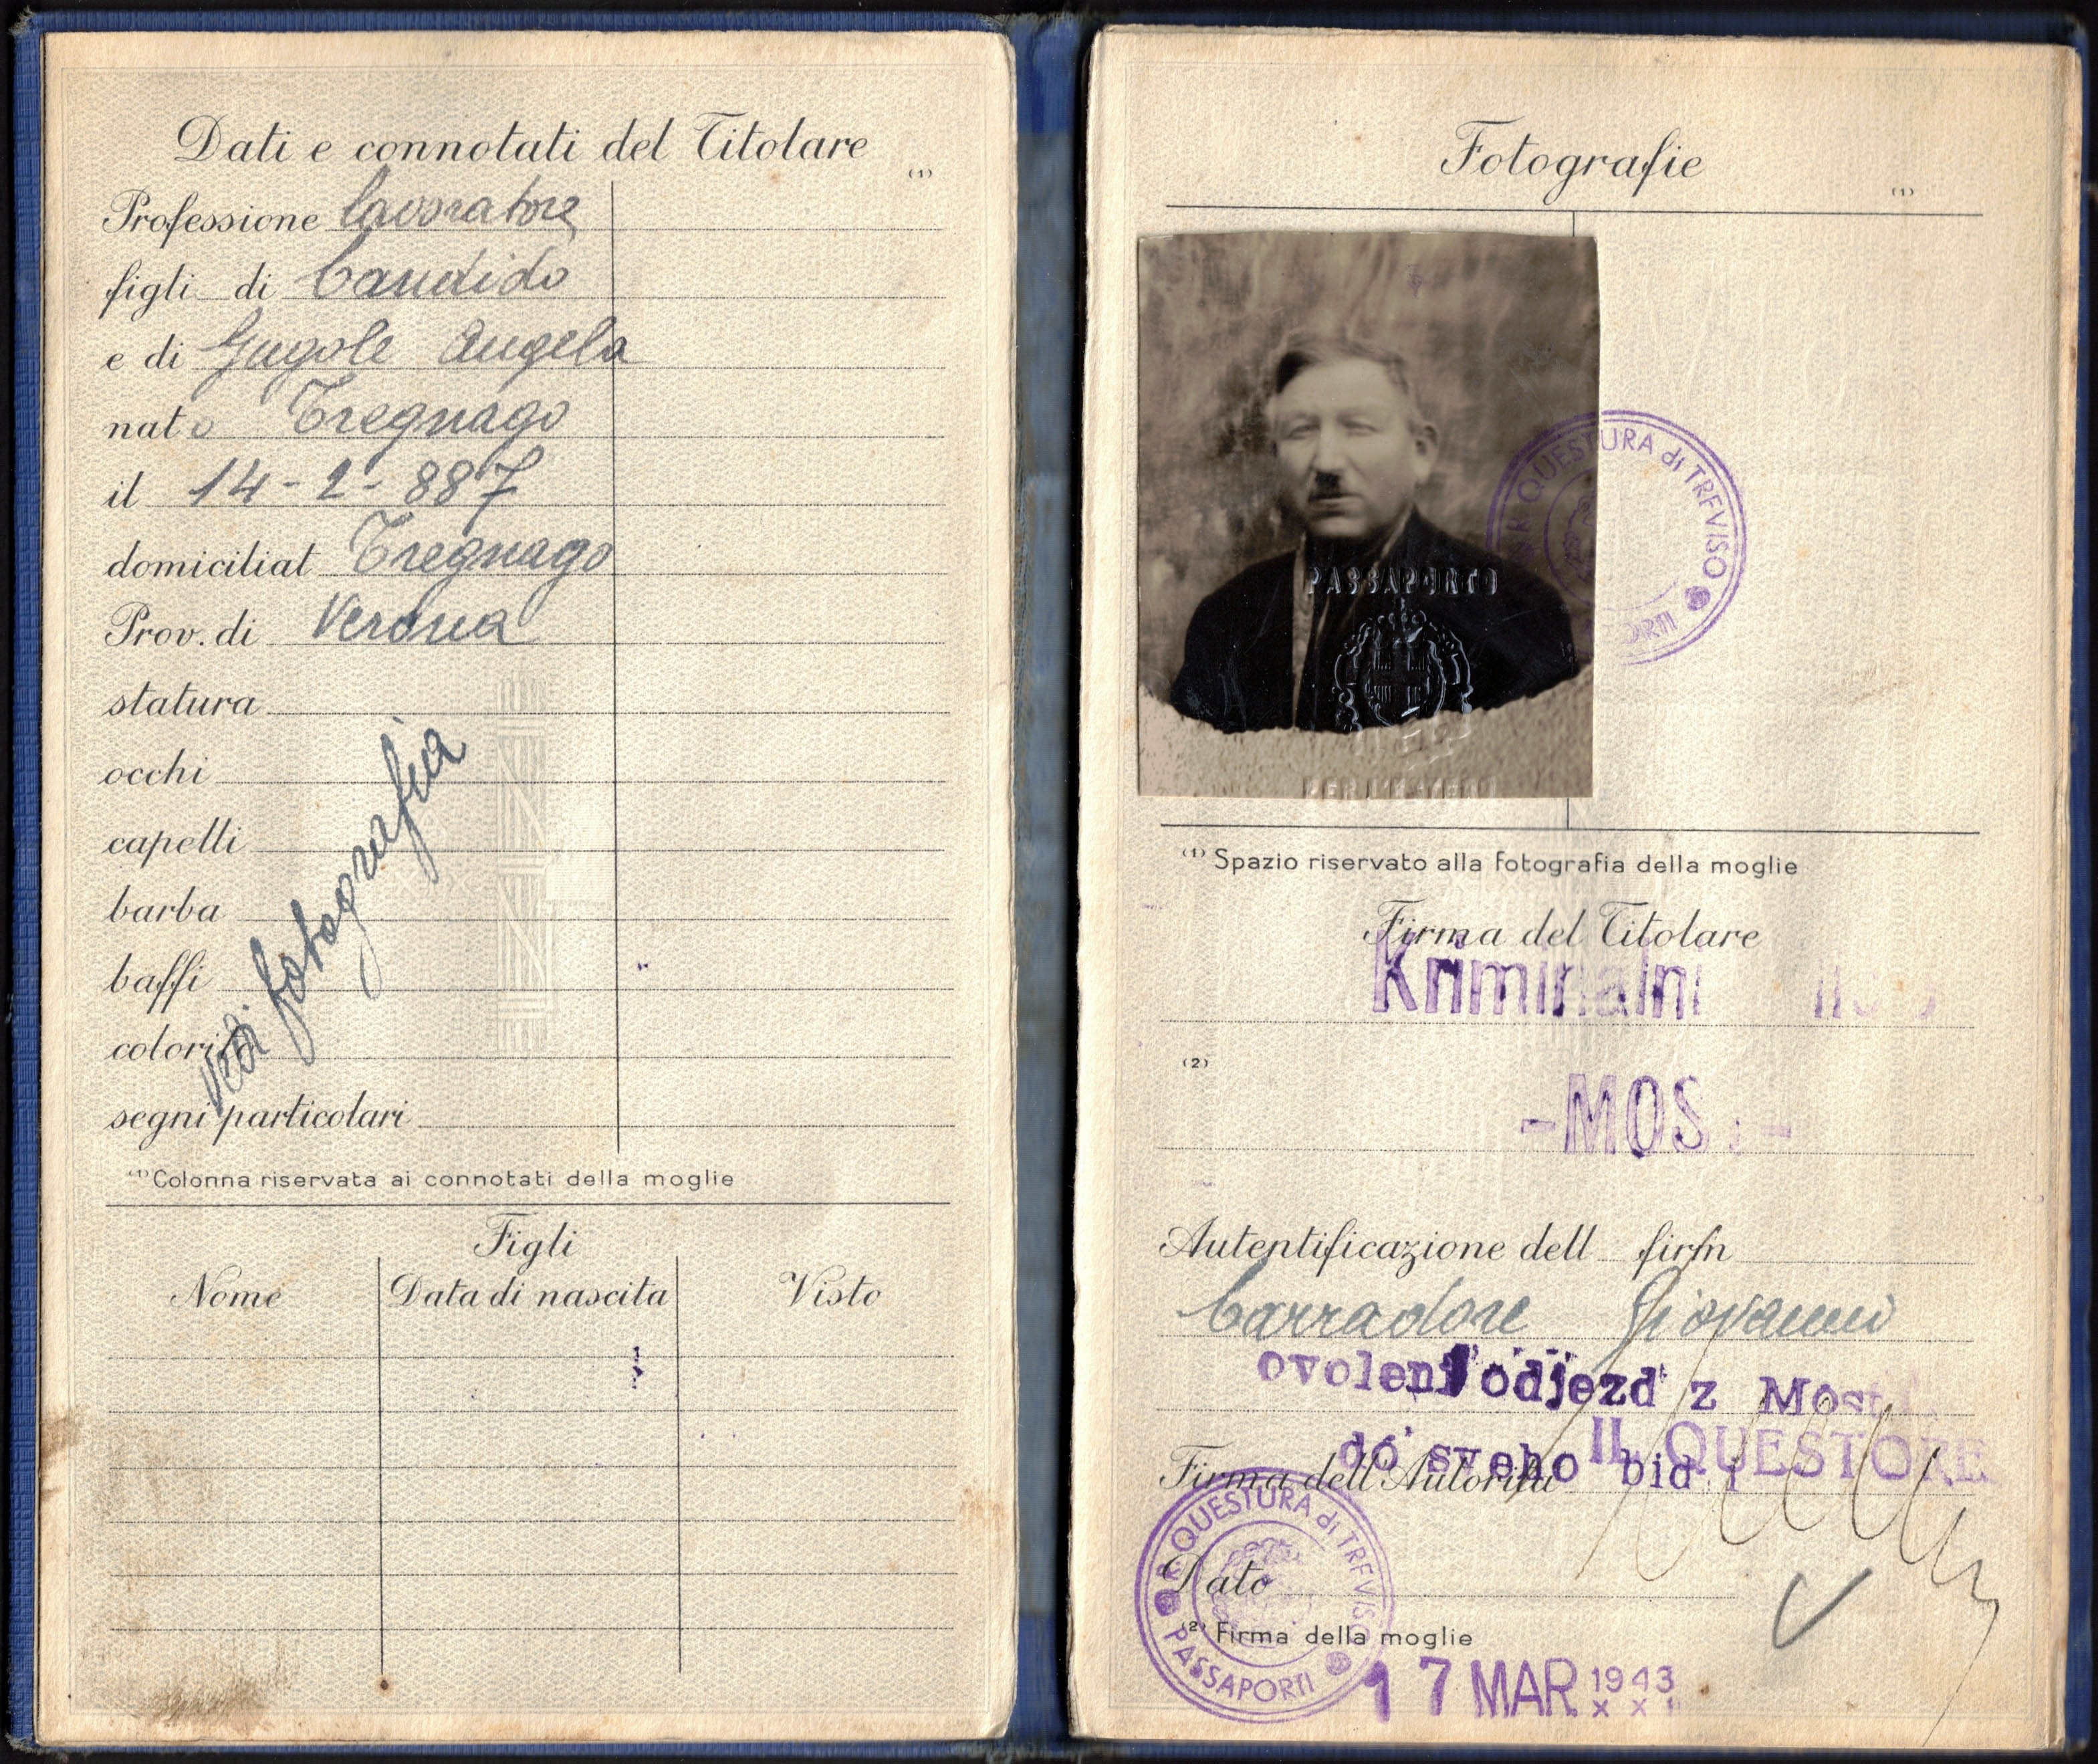 Dati e connotati del Titolare
(1)
Professione lavoratore
figli di Candido
e di Gugole Angela
nato Tregnago
il 14-2-887
domiciliat Tregnago
Prov. di Verona
statura
occhi
capelli
barba
baffi
colorito
segni particolari
Vedi fotografia
(1) Colonna riservata ai connotati della moglie
Figli
Nome Data di nascita Visto
Fotografie
(1)
R. QUESTURA di TREVISO
PASSAPORTO
(1) Spazio riservato alla fotografia della moglie
Firma del Titolare
Kriminalni
(2)
-MOS -
Autentificazione dell firm
Carradore Giovanni
ovolen odjezd z Most
do sveho bid
IL QUESTORE
Firma dell'Autorità
R. QUESTURA di TREVISO
PASSAPORTI
Dato
(2) Firma della moglie
17 MAR 1943